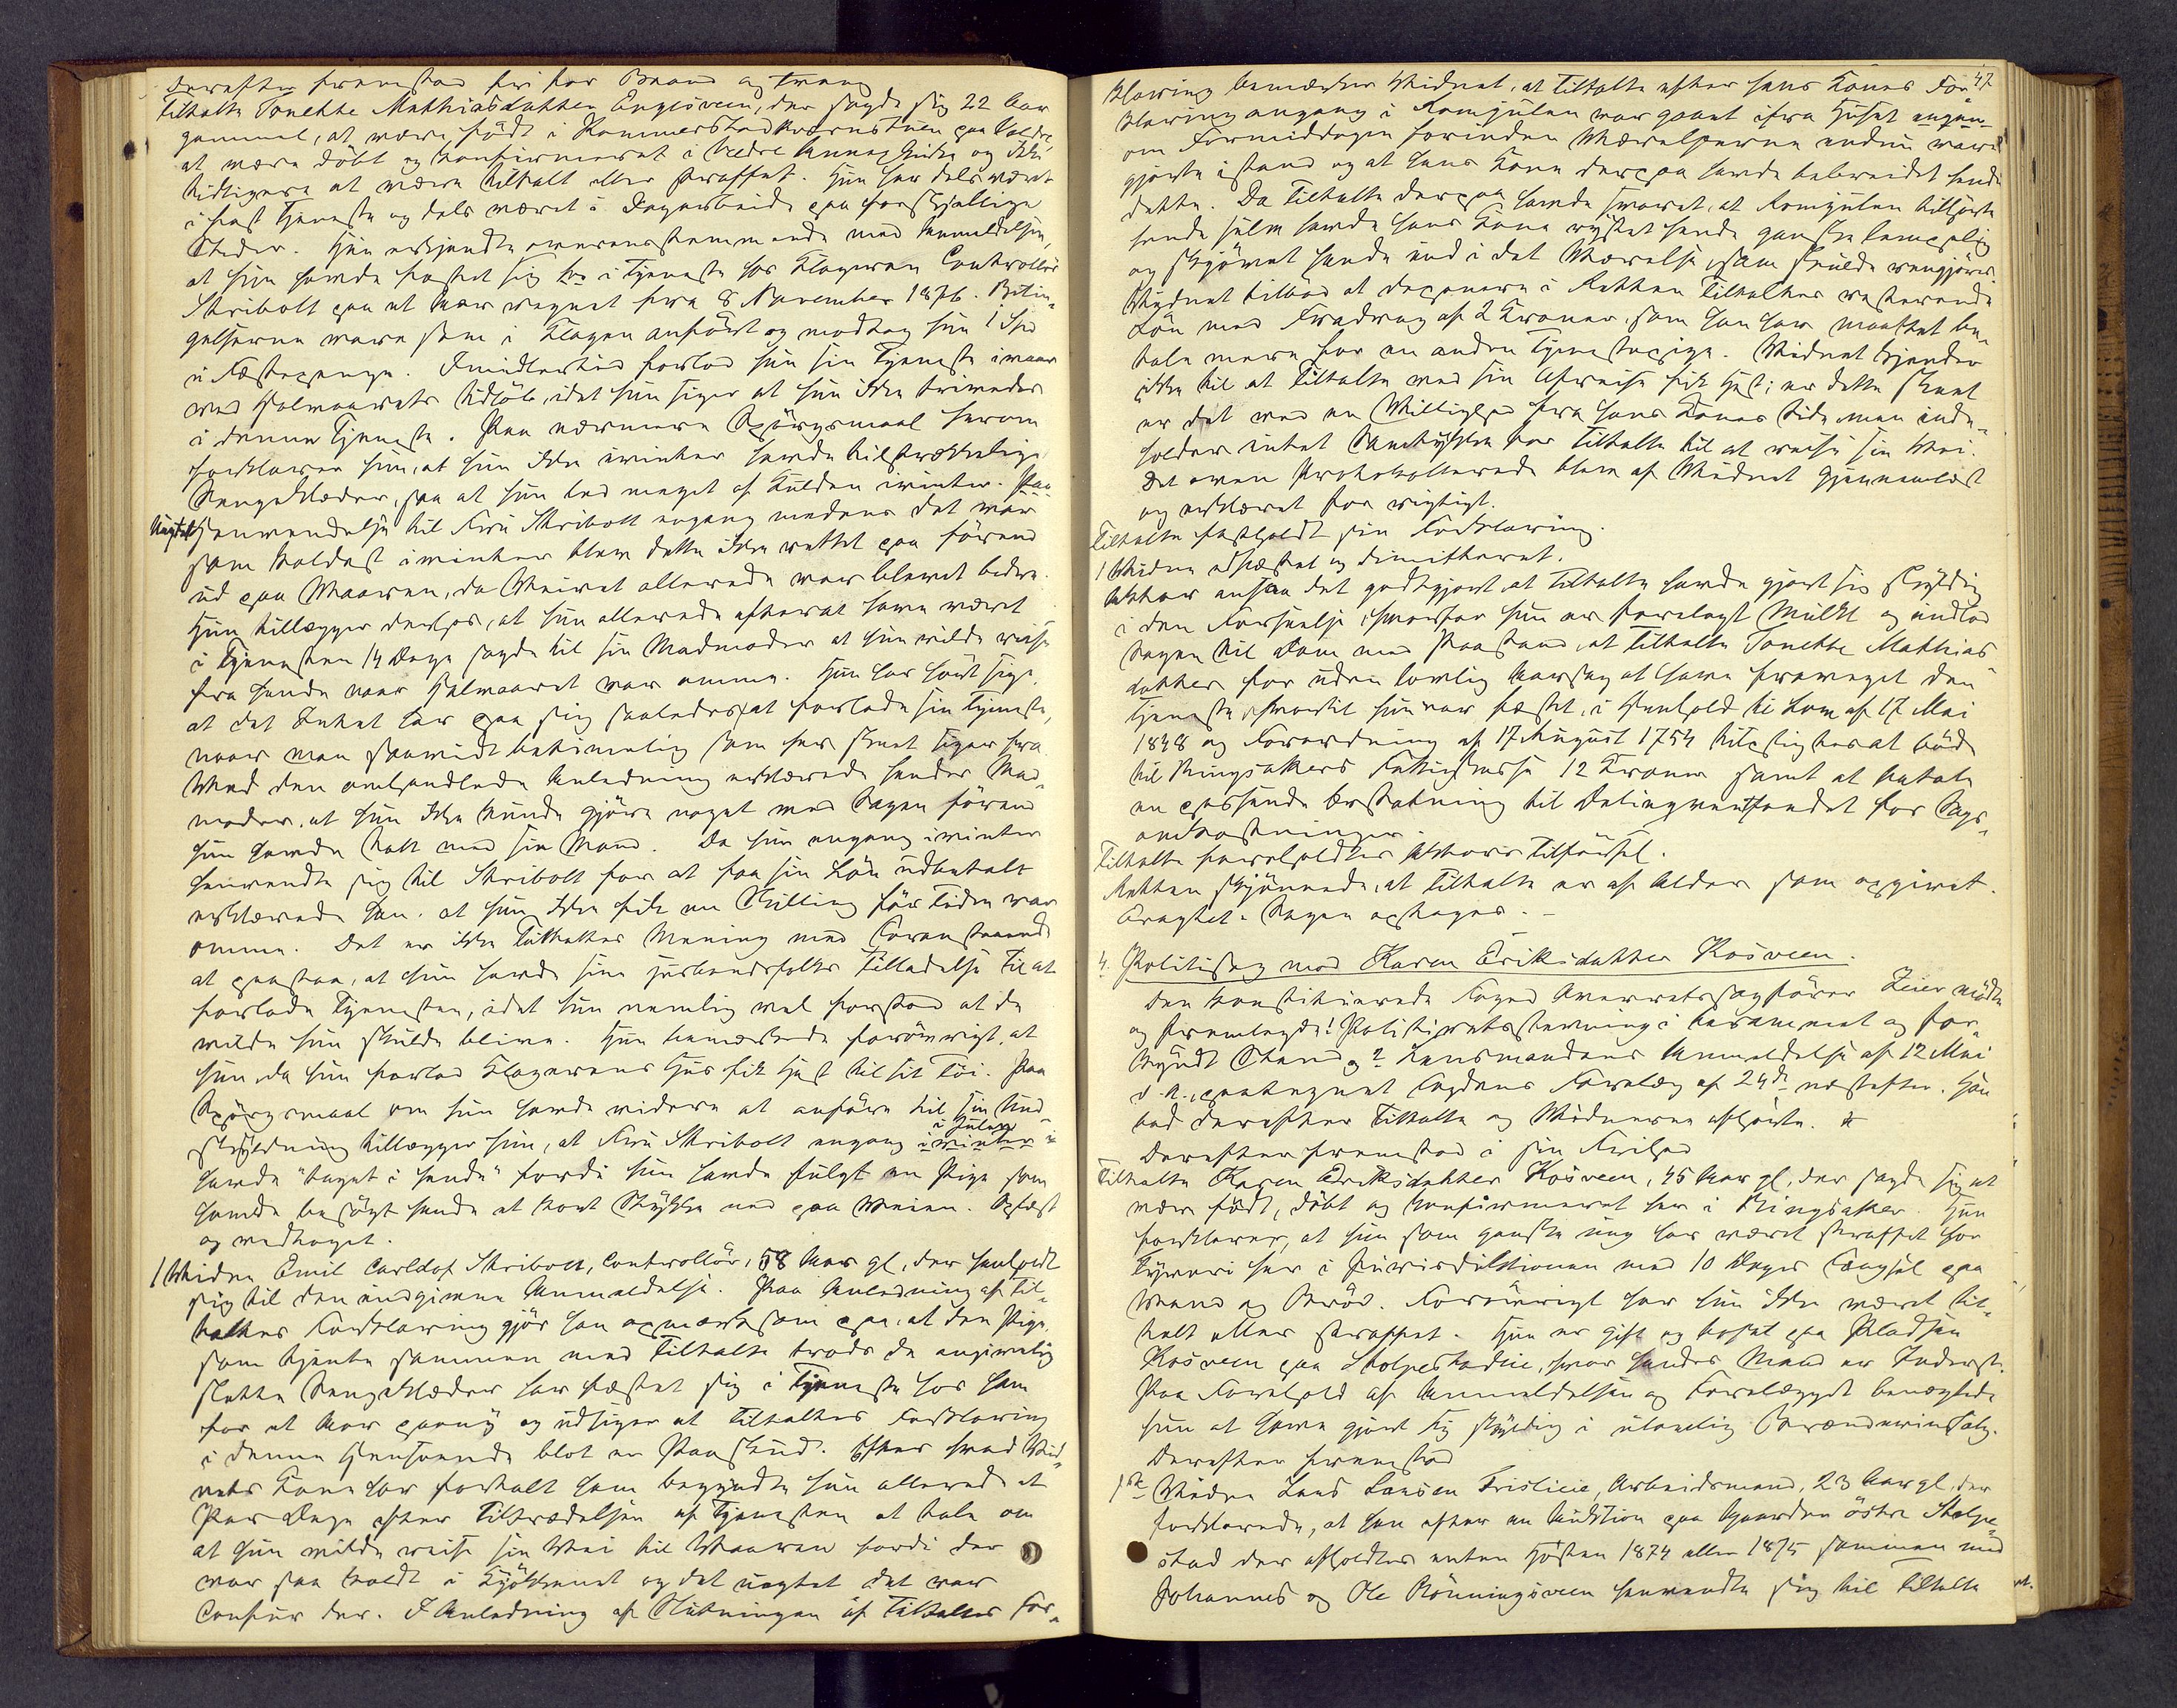 Derefter fremstod fri for Baand og Tvang
Tiltalte Tonette Mathiasdatter Engesveen, der sagde sig 22 Aar
gammel, at være født i Kommerstadkvernstuen paa Valdre,
at være døbt og konfirmeret i Vedre Annex Kirke og ikke
tidligere at være tiltalt eller straffet. Hun har dels været
i fast Tjeneste og dels været i Dagarbeide paa forskjellige
Steder. Hun erkjendte overensstemmende med Anmeldelsen,
at hun havde fæstet sig i Tjeneste hos Klageren Controllør
Skribolt paa et Aar regnet fra 8 November 1876. Betin-
gelserne vare som i Klagen anført og modtog hun 1 Spd
i Fæstepenge. Imidlertid forlod hun sin Tjeneste ivaar
ved Halvaarets Udløb, idet hun siger at hun ikke trivedes
i denne Tjeneste. Paa nærmere Spørgsmaal herom
forklarer hun, at hun ikke ivinter havde tilstrækkelige
Sengeklæder, saa at hun led meget af Kulden ivinter. Paa
Uagtet Henvendelse til Fru Skribolt engang medens det var
som koldest ivinter blev dette ikke rettet paa førend
ud paa Vaaren, da Veiret allerede var blevet bedre.
Hun tillægger derhos, at hun allerede efterat have været
i Tjenesten 14 Dage sagde til sin Madmoder at hun vilde reise
fra hende naar Halvaaret var omme. Hun har hørt sige,
at det Intet har paa sig saaledes at forlade sin Tjeneste,
naar man saavidt betimelig som her skeet siger fra.
Ved den omhandlede Anledning erklærede hendes Mad-
moder, at hun ikke kunde gjøre noget med Sagen førend
hun havde talt med sin Mand. Da hun engang ivinter
henvendte sig til Skribolt for at faa sin Løn udbetalt
erklærede han, at hun ikke fik en Skilling før Tiden var
omme. Det er ikke Tiltaltes Mening med Ovenstaaende
at paastaa, at hun havde sine Husbondsfolks Tilladelse til at
forlade Tjenesten, idet hun nemlig vel forstod at de
vilde hun skulde blive. Hun bemærkede forøvrigt, at
hun, da hun forlod Klagerens Hus fik Hest til sit Tøi. Paa
Spørgsmaal om hun havde videre at anføre til sin Und-
skyldning tillægger hun, at Fru Skribolt engang i Julen ivinter
havde "taget i hende" fordi hun havde fulgt en Pige som
havde besøgt hende et kort Stykke ned paa Veien. Oplæst
og vedtaget.
1 Vidne Emil Carlolof Skribolt, Controllør, 58 Aar gl, der henholdt
sig til den indgivne Anmeldelse. Paa Anledning af Til-
taltes Forklaring gjør han opmærksom paa, at den Pige,
som tjente sammen med Tiltalte trods de angivelig
slette Sengeklæder har fæstet sig i Tjeneste hos ham
for et Aar paany og udsiger at Tiltaltes Forklaring
i denne Henseende blot er Paaskud. Efter hvad Vid-
nets Kone har fortalt ham begyndte hun allerede et
Par Dage efter Tiltrædelsen af Tjenesten at tale om
at hun vilde reise sin Vei til Vaaren fordi der
var saa koldt i Kjøkkenet og det uagtet det var
Confur der. I Anledning af Slutningen af Tiltaltes For-
47
klaring bemærker Vidnet, at Tiltalte efter hans Kones For-
klaring engang i Romjulen var gaaet ifra Huset engan-
om Formiddagen forinden Værelserne endnu vare
gjorte istand og at hans Kone derpaa havde bebreidet hende
dette. Da Tiltalte derpaa havde svaret, at Romjulen tilhørte
hende selv havde hans Kone rystet hende ganske lempelig
og skjøvet hende ind i det Værelse, som skulde rengjøres.
Vidnet tilbød at deponere i Retten Tiltaltes resterende
Løn med Fradrag af 2 Kroner, som han har maattet be-
tale mere for en anden Tjenestepige. Vidnet kjender
ikke til at Tiltalte ved sin Afreise fik Hest; er dette skeet
er det ved en Villighed fra hans Kones Side men inde-
holder intet Samtykke for Tiltalte til at reise sin Vei.
Det oven Protokollerede blev af Vidnet gjennemlæst
og erklæret for rigtigt.
Tiltalte fastholdt sin Forklaring.
1 Vidne edfæstet og dimitteret.
Aktor ansaa det godtgjort at Tiltalte havde gjort sig skyldig
i den Forseelse, hvorfor hun er forelagt Mulkt og indlod
Sagen til Dom med Paastand, at Tiltalte Tonette Mathias-
datter for uden lovlig Aarsag at have fraveget den
Tjeneste, hvortil hun var fæstet, i Henhold til Lov af 17 Mai
1848 og Forordning af 17 August 1754 tilpligtes at bøde
til Ringsakers Fattigkasse 12 Kroner samt at betale
en passende Erstatning til Delinqventfondet for Sags-
omkostninger.
Tiltalte foreholdtes Aktors Tilførsel.
Retten skjønnede, at Tiltalte er af Alder som opgivet.
Eragtet: Sagen optages. –
4. Politisag mod Karen Eriksdatter Kosveen.
Den konstituerede Foged Overretssagfører Zeier mødte
og fremlagde: 1 Politiretsstævning i beramet og for-
kyndt Stand, 2 Lensmandens Anmeldelse af 12 Mai
d. A., paategnet Fogdens Forelæg af 24de næstefter. Han
bad derefter Tiltalte og Vidnerne afhørte.
Derefter fremstod i sin Frihed
Tiltalte Karen Eriksdatter Kosveen, 45 Aar gl, der sagde sig at
være født, døbt og konfirmeret her i Ringsaker. Hun
forklarer, at hun som ganske ung har været straffet for
Tyveri her i Jurisdiktionen med 10 Dages Fængsel paa
Vand og Brød. Forøvrigt har hun ikke været til-
talt eller straffet. Hun er gift og bosat paa Pladsen
Kosveen paa Stolpestadeie, hvor hendes Mand er Inderst.
Paa Forehold af Anmeldelsen og Forelægget benegtede
hun at have gjort sig skyldig i ulovlig Brændevinssalg.
Derefter fremstod
1ste Vidne Lars Larsen Frislieie, Arbeidsmand, 23 Aar gl, der
forklarede, at han efter en Auktion paa Gaarden østre Stolpe-
stad der afholdtes enten Høsten 1874 eller 1875 sammen med
Johannes og Ole Rønningsveen henvendte sig til Tiltalte